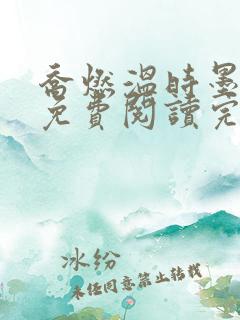 喬燃溫時墨
免費閱讀完
冰纷
未经同意禁止转载